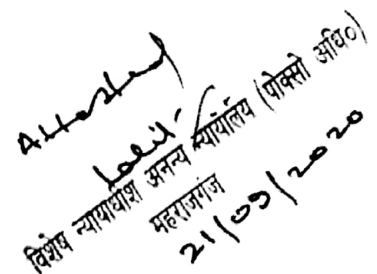 Attested
Lalit
विशेष न्यायाधीश अनन्य न्यायालय (पोक्सो अधि०)
महराजगंज
21/09/2020